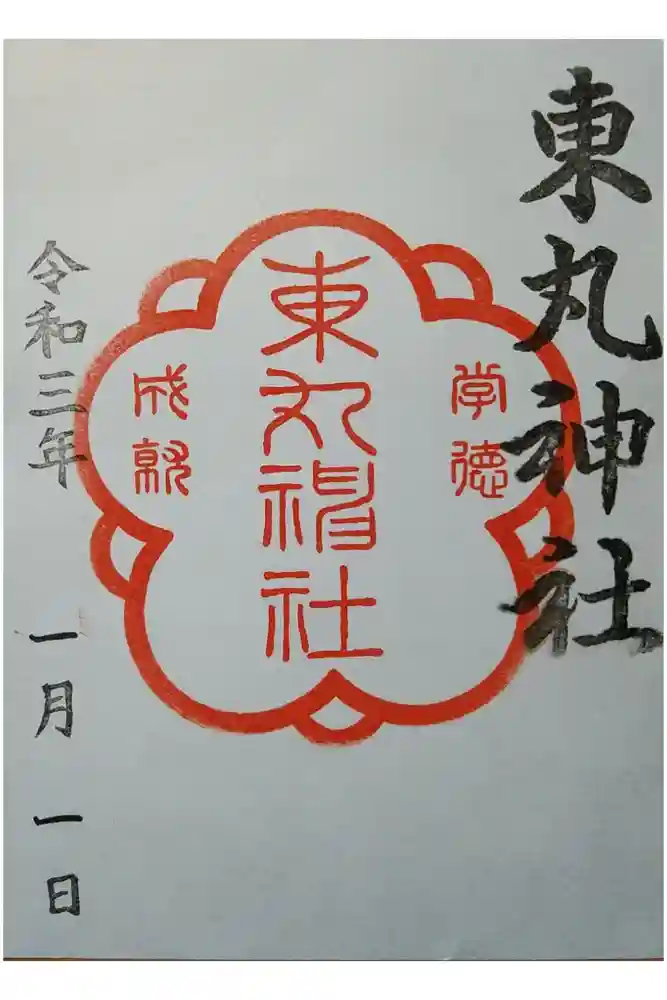 東丸神社
学德
東丸神社
成就
令和三年 一月 一日